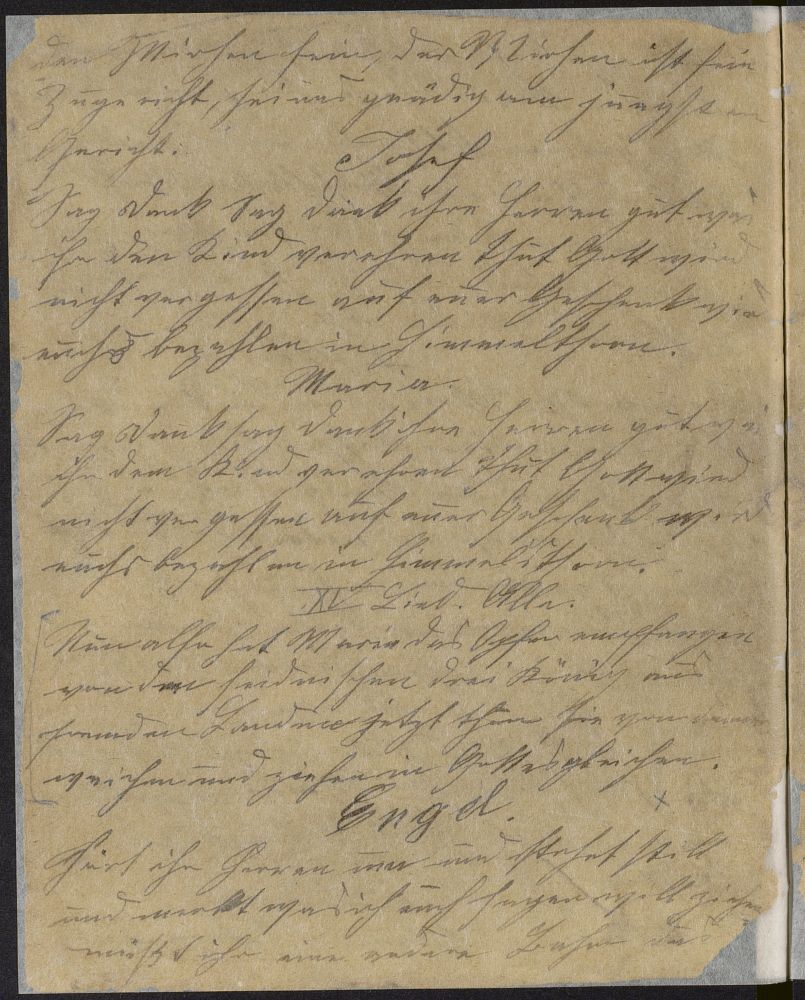 den Mirhen sein, der Mirhen ist sein
Zugericht, sei uns gnädig am jüngsten
Gericht.
Josef
Sag Dank sag Dank ihr Herren gut was
ihr den Kind verehren thut Gott wird
nicht vergessen auf euer Geschenk wird
euchs bezahlen in Himmelthron.
Maria.
Sag Dank sag Dank ihr Herren gut was
ihr dem Kind verehren thut Gott wird
nicht vergessen auf euer Geschenk wird
euchs bezahlen im Himmelsthron.
XI Lied. Alle.
Nun also hat Maria das Opfer empfangen
von den heidnischen drei König aus
fremden Landen jetzt thun sie von dannen
weichen und ziehen in Gottesgleichen.
Engel.
Hört ihr Herren nun und stehet still
und merkt was ich euch sagen will ziehen
müßt ihr eine andere Bahn das